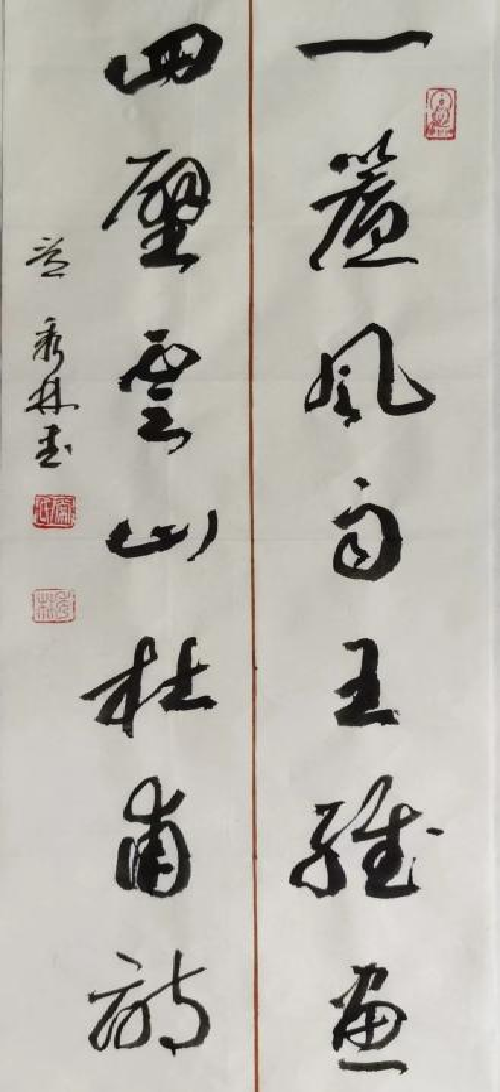 一簾風雨王維畫
四壁雲山杜甫詩
秀林书